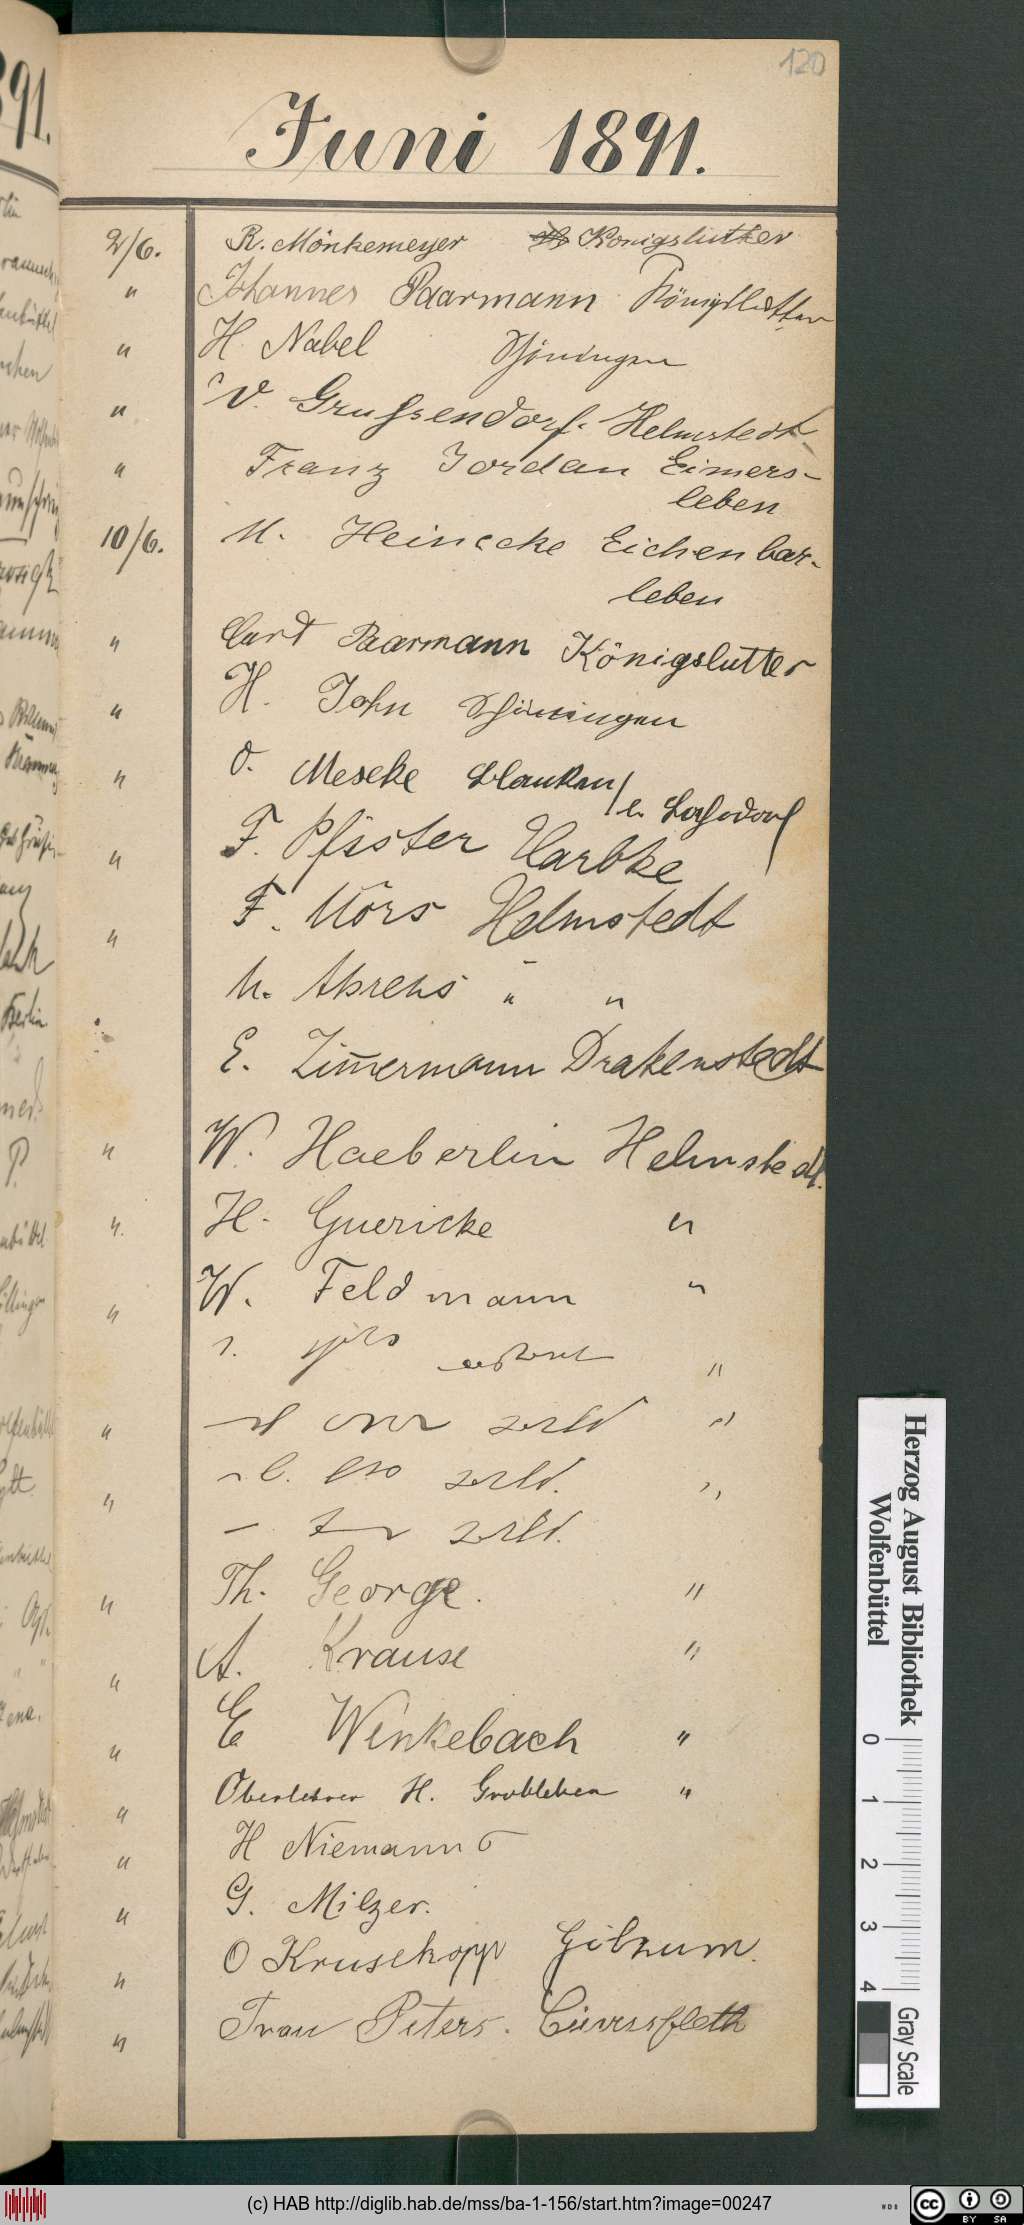 120
Juni 1891.
2/6. R. Mönkemeyer Königslutter
" Johannes Paarmann Königslutter
" H. Nabel Schöningen
" W. Grussendorf. Helmstedt
" Franz Jordan Eimers-
leben
10/6. M. Heinecke Eichenbar-
leben
" Curt Paarmann Königslutter
" H. John Schöningen
" O. Meseke
" F. Pfister Harbke
" F. Mörs Helmstedt
M. Ahrens " "
E. Zimmermann Drakenstedt
" W. Haeberlin Helmstedt.
" H. Guericke "
" W. Feldmann "
"
" "
" "
" Th. George. "
" A. Krause "
" E Winkebach "
" Oberlehrer H. Grobleben "
" H Niemann
" G. Milzer.
" O Krusekopp
" Frau Peters.
Herzog August Bibliothek
Wolfenbüttel
0 1 2 3 4
Gray Scale
(c) HAB http://diglib.hab.de/mss/ba-1-156/start.htm?image=00247
cc BY SA